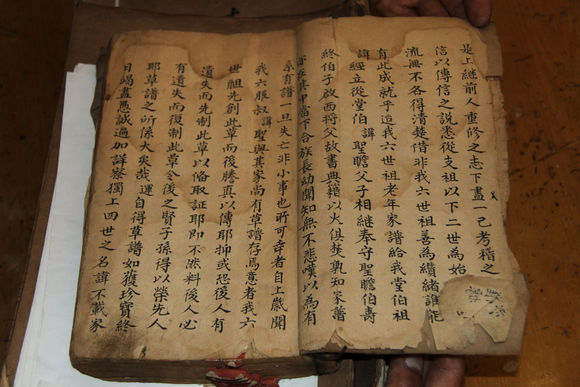 是上繼前人重修之志下盡一己考稽之
信以傳信之説悉從支祖以下二世為始
流無不各得清楚借非我六世祖善為纘緒誰能
有此成就乎迨我六世祖老年家譜給我堂伯祖
諱經立從堂伯諱聖瞻父子相繼奉守聖瞻伯壽
終伯子啟西將父故書典籍以火俱焚孰知家譜
在其中當下合族長幼聞知無不悲嘆以為有
系有譜一旦失亡非小事也所可幸者自上嚴聞
我六服叔諱聖與其家尚有草譜存焉意者我六
世祖先創此草而後謄真以傳耶抑或恐後人有
遺失而先制此草以俻取証耶即不然料後人必
有遺失而復制此草令後之賢子孫得以榮先人
耶草譜之所係大矣哉運自得草譜如獲珍寶終
日竭盡愚誠過加詳察獨上四世之名諱不載家